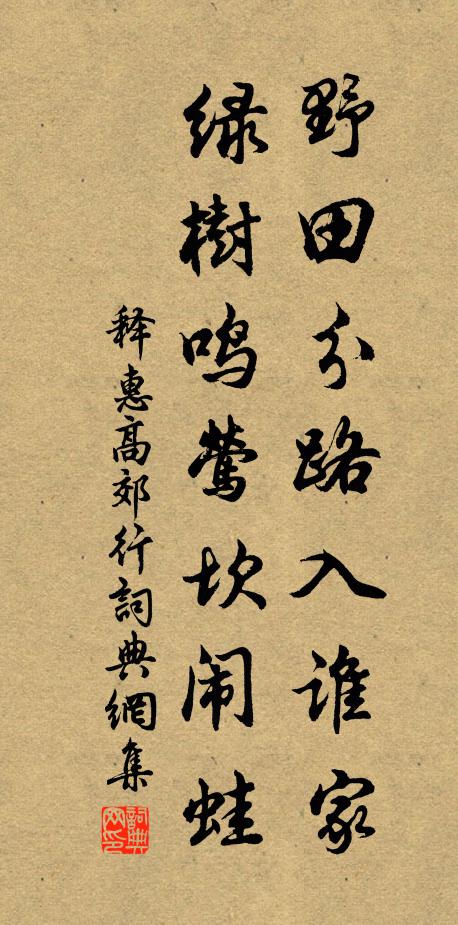 野田分路入谁家
绿樹鸣莺坎闹蛙
释惠高郊行詞典網集
詞典网印